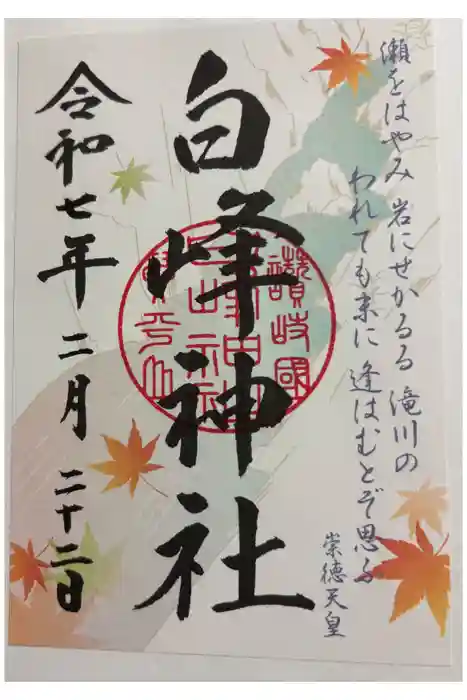 瀬をはやみ 岩にせかるる 滝川の
われても末に 逢はむとぞ思ふ
崇徳天皇
白峰神社
讃岐國
令和七年 二月 二十二日